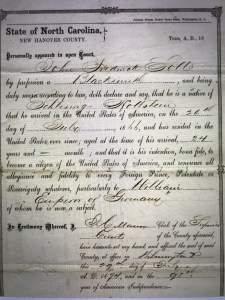 State of North Carolina,
NEW HANOVER COUNTY.
TERM, A. D., 18
Personally appeared in open Court,
John Frederick
by profession a Blacksmith, and being
duly sworn according to law, doth declare and say, that he is a native of
Schleswig Holstein
that he arrived in the United States of America, on the 20th
day of July 1866, and has resided in the
United States ever since; aged at the time of his arrival, 24
years and — months; and that it is his intention, bona fide, to
become a citizen of the United States of America, and renounce all
allegiance and fidelity to every Foreign Prince, Potentate or
Sovereignty whatever, particularly to William
Emperor of Germany
of whom he is now a subject.
In Testimony Whereof, I, Clerk of the Superior
Court of the County aforesaid,
have hereunto set my hand and affixed the seal of said
County, at office in Wilmington
the day of
A. D. 1874, and in the year of American Independence.